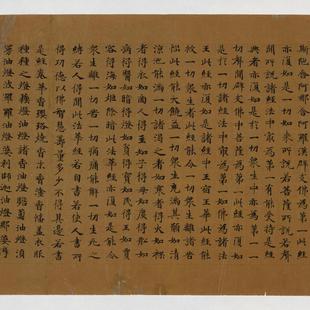 斯陀含阿那含阿羅漢辟支佛為第一此經
亦復如是一切如來所說若菩薩所說若聲
聞所說諸經法中最為第一有能受持是經
典者亦復如是於一切衆生中亦為第一一
切聲聞辟支佛中菩薩為第一此經亦復如
是於一切諸經法中最為第一如佛為諸法
王此經亦復如是諸經中王宿王華此經能
救一切衆生者此經能令一切衆生離諸苦
惱此經能大饒益一切衆生充滿其願如清
涼池能滿一切諸渴乏者如寒者得火如裸
者得衣如商人得主如子得母如渡得船如
病得醫如暗得燈如貧得寶如民得王如賈
客得海如炬除暗此法華經亦復如是能令
衆生離一切苦一切病痛能解一切生死之
縛若人得聞此法華經若自書若使人書所
得功德以佛智慧籌量多少不得其邊若書
是經卷華香瓔珞燒香末香塗香幡蓋衣服
種種之燈蘇燈油燈諸香油燈瞻蔔油燈須
曼油燈波羅羅油燈婆利師迦油燈那婆摩